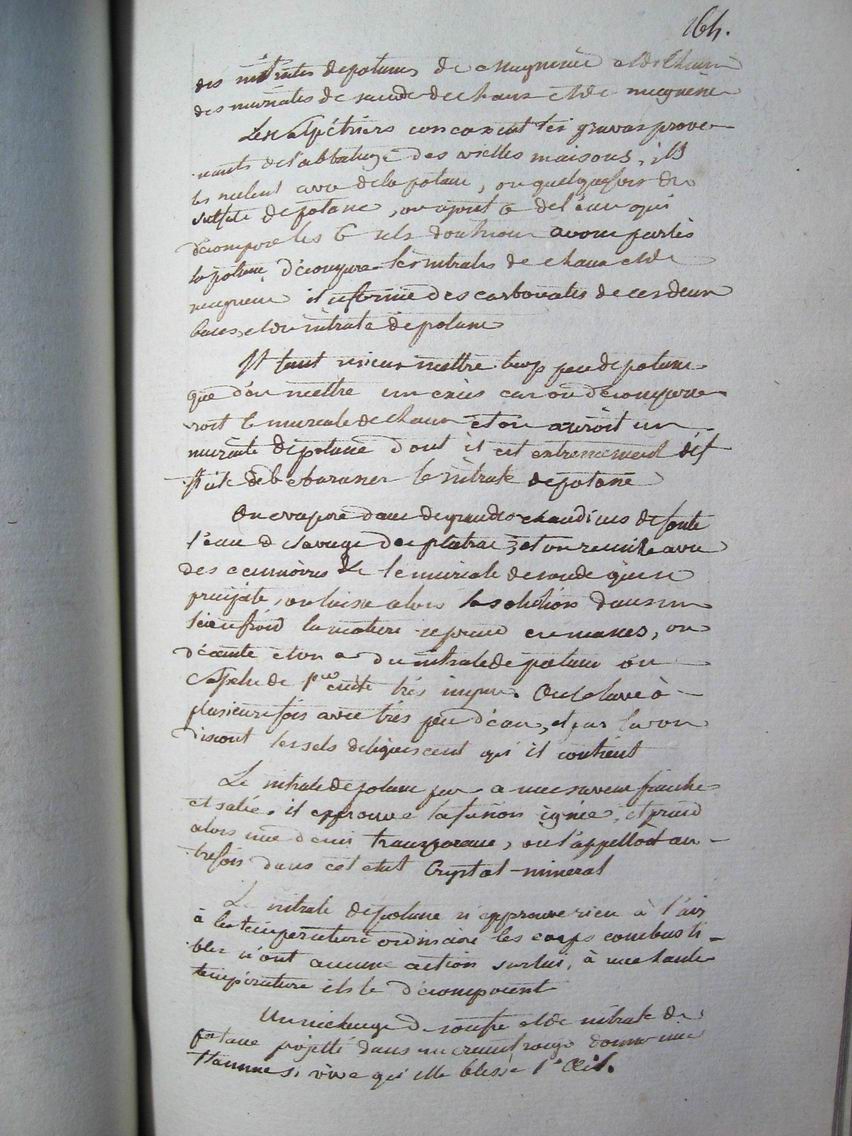 164.
des nitrates de potasse de magnesie et de chaux
des muriates de soude de chaux et de magnesie
Les salpétriers concassent les gravas prove-
nants de l'abbatage des vielles maisons, ils
les melent avec de la potasse, ou quelquefois du
sulfate de potasse, on ajoute de l'eau qui
décompose les 6 sels dont nous avons parlés
la potasse décompose les nitrates de chaux et de
magnesie il se forme des carbonates de ces deux
bases et du nitrate de potasse
Il faut mieux mettre trop peu de potasse
que d'en mettre un excès car on décompose-
roit le muriate de chaux et on auroit un
muriate de potasse dont il est extremement dif
ficile debebarasser le nitrate de potasse
On evapore dans de grandes chaudieres de fonte
l'eau de lavage des platras et on retire avec
des ecumoires le muriate de soude qui se
précipite, on laisse alors la solution dans un
lieu froid la matiere se prend en masses, on
décante et on a du nitrate de potasse ou
salpetre de 1ere cuite très impur. On le lave à
plusieurs fois avec très peu d'eau, et par la on
dissout les sels deliquescent qu'il contient
Le nitrate de potasse pur a une saveur fraiche
et salée. il epprouve la fusion ignée, et prend
alors une demi transparence, on l'appelloit au-
trefois dans cet etat Crystal-mineral
Le nitrate de potasse n'epprouve rien à l'air
à la température ordinaire les corps combusti-
bles n'ont aucune action sur lui, à une haute
température ils le décomposent
Un mélange de soufre et de nitrate de
potasse projetté dans un creuset rouge donne une
flamme si vive qu'elle blesse l'oeil.